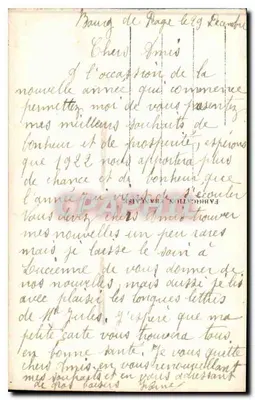 Bourg de Péage le 29 Décembre
Chers Amis
A l'occassion de la
nouvelle année qui commence
permettez moi de vous présenter
mes meilleurs souhaits de
bonheur et de prosperité, espérons
que 1922 nous apportera plus
de chance et de bonheur que
l'année s'écouler
vous devez chers Amis trouver
mes nouvelles un peu rares
mais je laisse le soin à
Lucienne de vous donner de
nos nouvelles, mais aussi je lis
avec plaisir les longues lettres
de Mr Jules. J'espère que ma
petite carte vous trouvera tous
en bonne santé. Je vous quitte
chers Amis en vous renouvellant
mes souhaits et en vous adressant
de gros baisers
FABRICATION